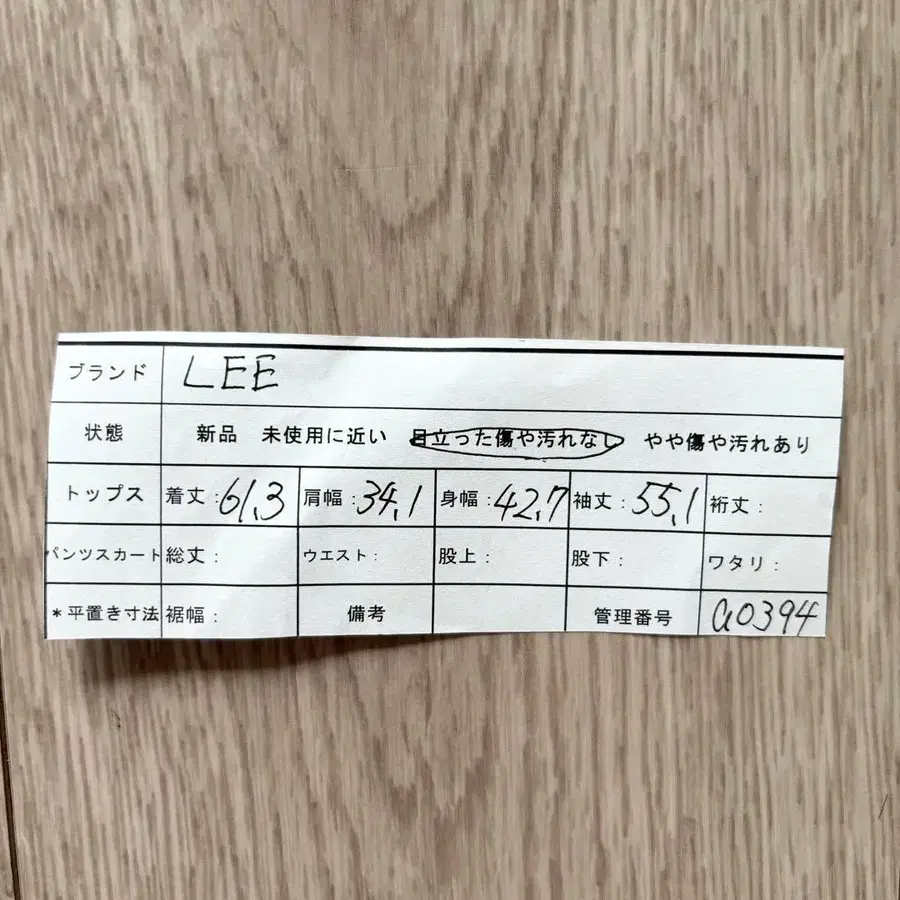 ブランド LEE
状態 新品 未使用に近い 目立った傷や汚れなし やや傷や汚れあり
トップス 着丈:61.3 肩幅:34.1 身幅:42.7 袖丈:55.1 裄丈:
パンツスカート 総丈: ウエスト: 股上: 股下: ワタリ:
*平置き寸法 裾幅: 備考 管理番号 a0394